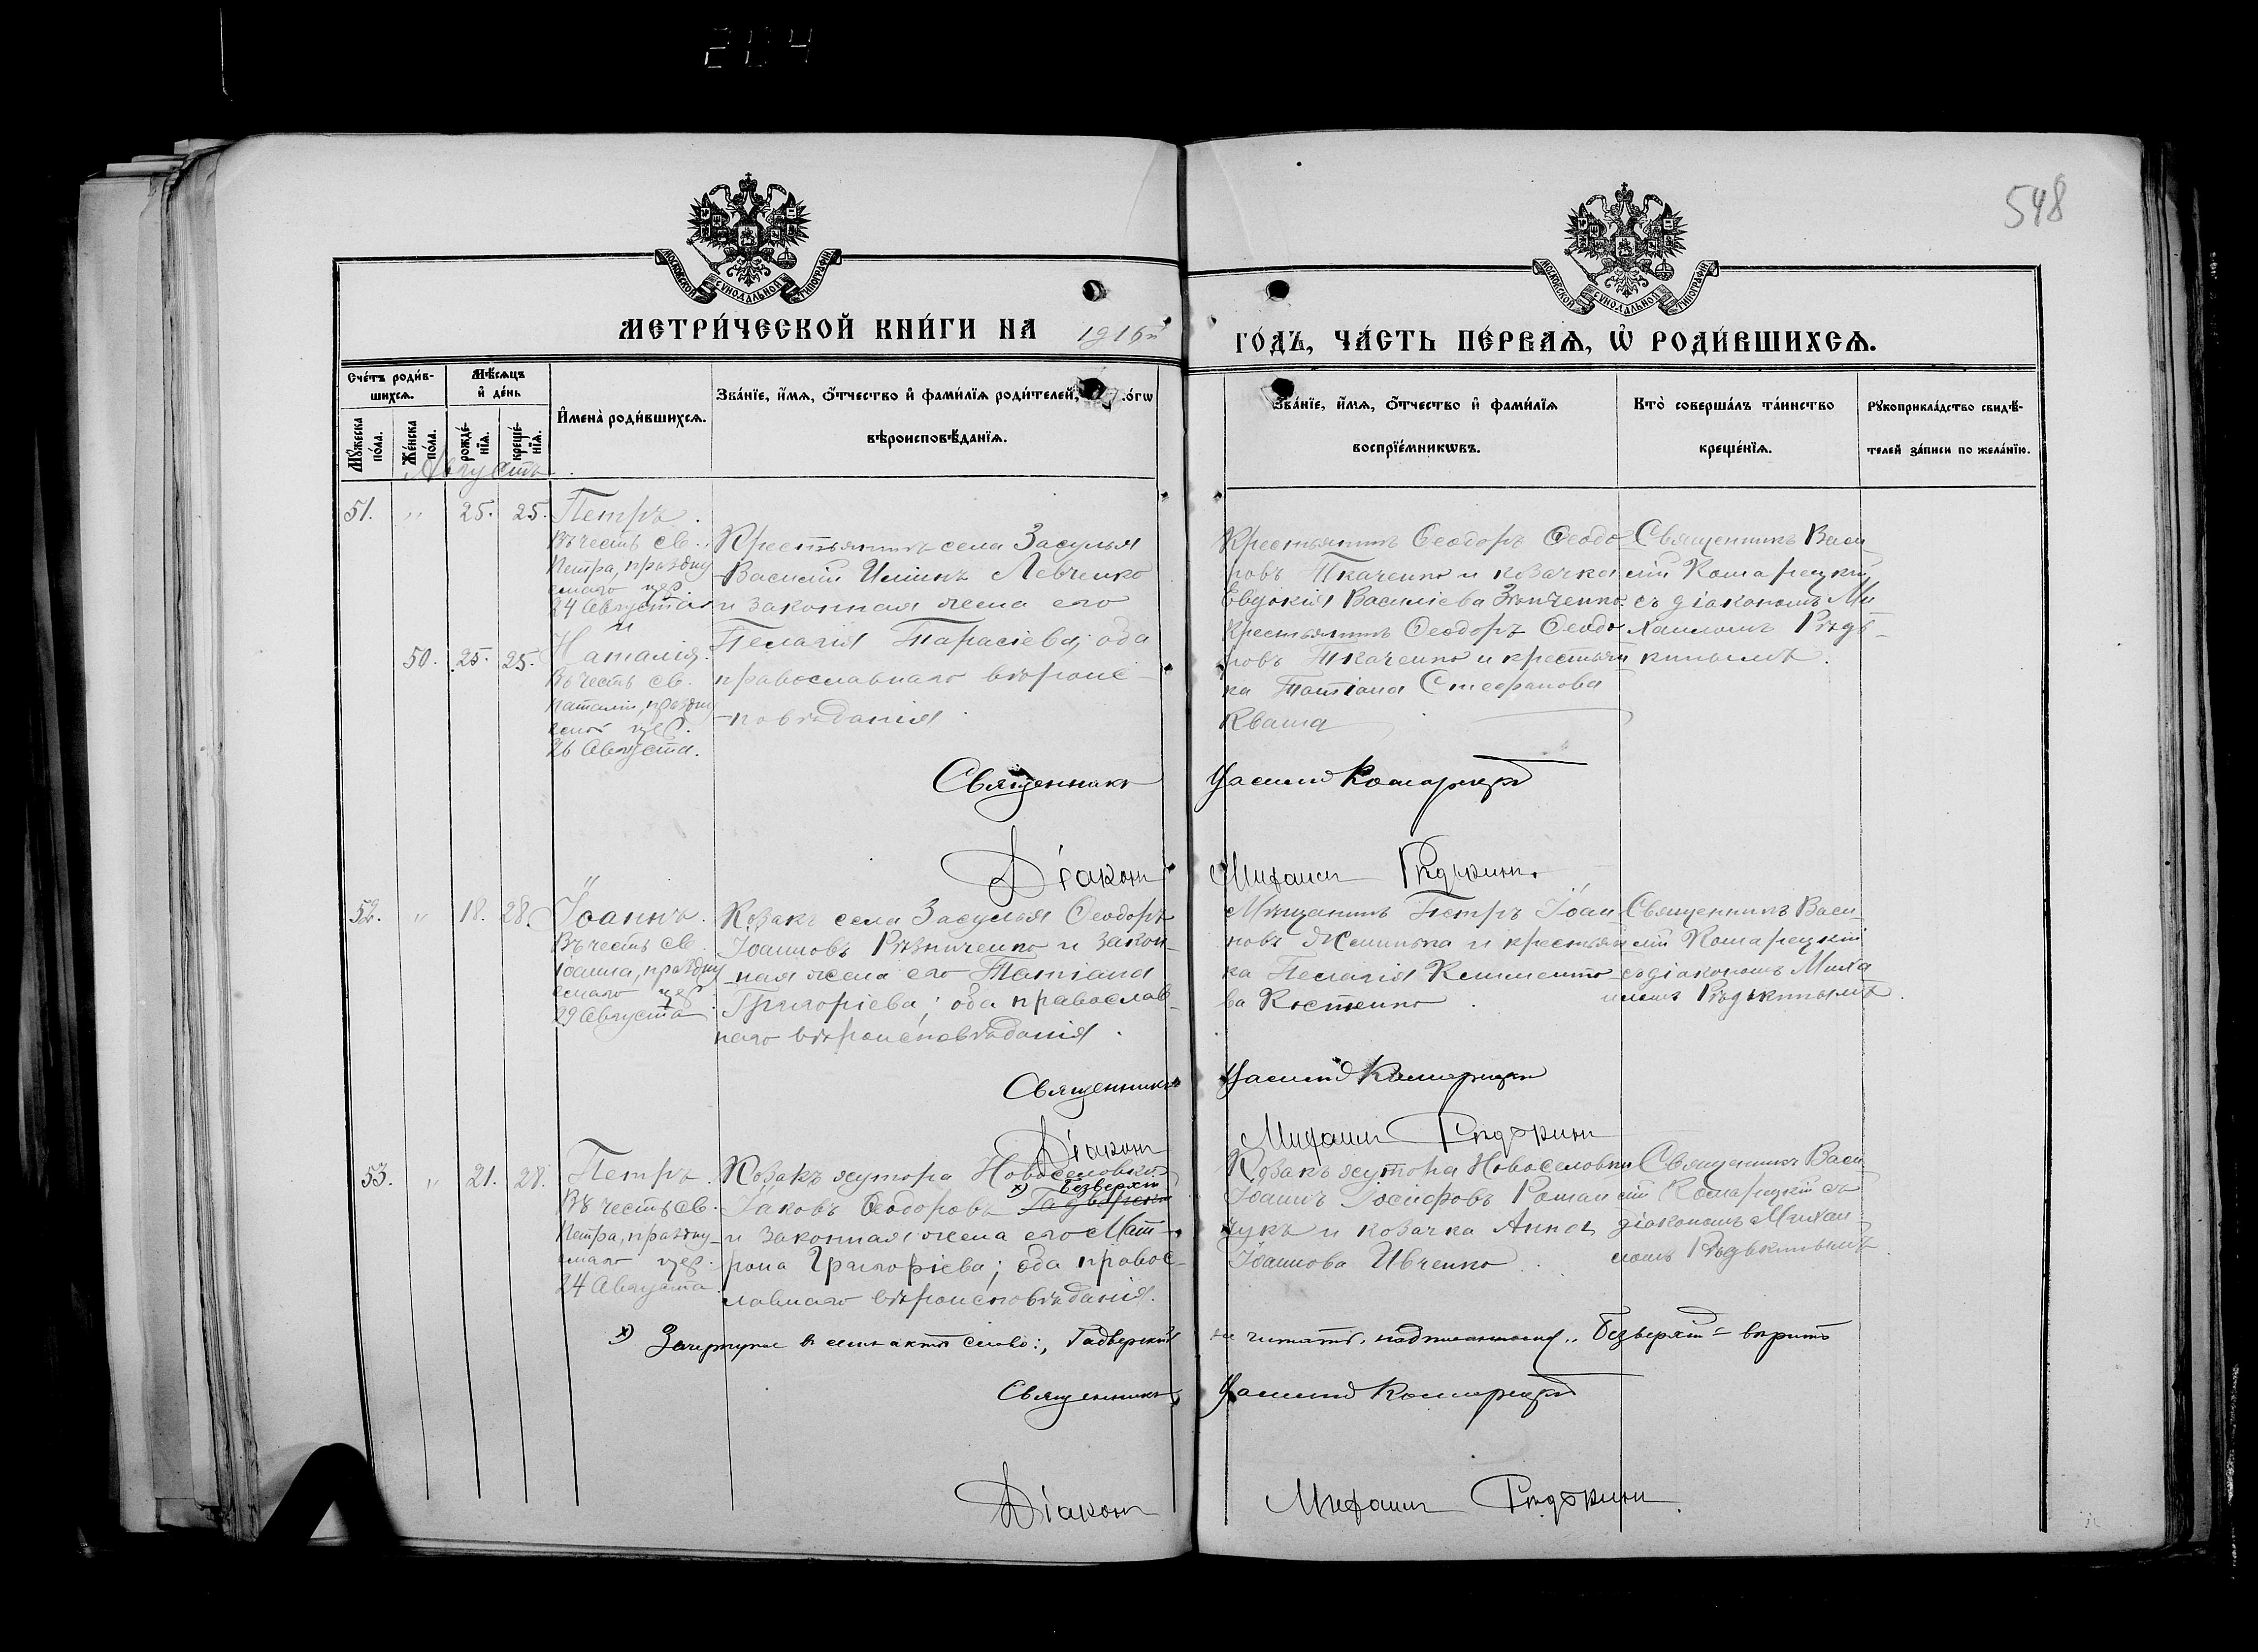 548
МОСКОВСКОЙ СѴНОДАЛЬНОЙ ТИПОГРАФІИ
МОСКОВСКОЙ СѴНОДАЛЬНОЙ ТИПОГРАФІИ
МЕТРИ́ЧЕСКОЙ КНИ́ГИ НА 1916й
ГО́ДЪ, ЧА́СТЬ ПЕ́РВАѦ, Ѡ҆ РОДИ́ВШИХСѦ.
Сче́тъ роди́в-
шихсѧ.
Мꙋ́жеска по́ла.
Же́нска по́ла.
Мѣ́сѧцъ
и҆ де́нь
рожде́-
нїѧ.
креще́-
нїѧ.
И҆мена̀ роди́вшихсѧ.
Зва́нїе, и҆́мѧ, ѻ҆́тчество и҆ фами́лїѧ роди́телей,
вѣроисповѣ́данїѧ.
Зва́нїе, и҆́мѧ, ѻ҆́тчество и҆ фами́лїѧ
воспрїе́мникѡвъ.
Кто̀ соверша́лъ та́инство
креще́нїѧ.
Рꙋкоприкла́дство свидѣ́-
телей за́писи по жела́нїю.
Августъ
51. " 25. 25. Петръ.
Въ честь св.
Петра, праздну
емаго цер.
24 Августа
и
50. 25. 25. Наталія.
Въ честь св.
Наталіи, праздну
емой цер.
26 Августа.
Крестьянинъ села Засулья
Василій Левченко
и законная жена его
Пелагія Тарасіева; оба
православнаго вѣроис-
повѣданія.
Крестьянинъ Ѳеодоръ Ѳеодо
ровъ Ткаченко и козачка
Евдокія Василіева
Крестьянинъ Ѳеодоръ Ѳеодо
ровъ Ткаченко и крестьян
ка Татіана Стефанова
Кваша
Священникъ Васи
лій Комарецкій
съ діакономъ Ми
хаиломъ Рѣдь-
кинымъ.
Священникъ Василій Комарецкій
Діаконъ Михаилъ Рѣдькинъ.
52. " 18. 28. Іоаннъ.
Въ честь св.
Іоанна, праздну
емаго цер.
29 Августа.
Козакъ села Засулья Ѳеодоръ
Іоанновъ Рѣзниченко и закон-
ная жена его Татіана
Григоріева; оба православ-
наго вѣроисповѣданія.
Мѣщанинъ Петръ Іоан
новъ и крестьян
ка Пелагія Климентіе
ва Костенко.
Священникъ Васи-
лій Комарецкій
съ діакономъ Миха
иломъ Рѣдькинымъ.
Священникъ Василій Комарецкій
Діаконъ Михаилъ Рѣдькинъ
53. " 21. 28. Петръ.
Въ честь св.
Петра, праздну-
емаго цер.
24 Августа.
Козакъ хутора Новоселовки
х) Безверхій
Іаковъ Ѳеодоровъ
и законная жена его Мат-
рона Григоріева; оба правос-
лавнаго вѣроисповѣданія.
Козакъ хутора Новоселовки
Іоаннъ Іосифовъ Роман
чукъ и козачка Анна
Іоаннова Ивченко.
Священникъ Васи
лій Комарецкій съ
діакономъ Михаи
ломъ Рѣдькинымъ.
х) Зачеркнутое въ семъ актѣ слово: не читать, надписанному „Безверхій" вѣрить
Священникъ Василій Комарецкій
Діаконъ Михаилъ Рѣдькинъ.